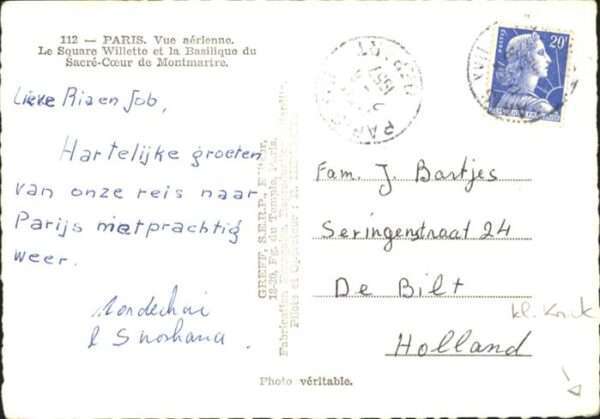 112 — PARIS. Vue aérienne.
Le Square Willette et la Basilique du
Sacré-Cœur de Montmartre.
Lieve Ria en Job,
Hartelijke groeten
van onze reis naar
Parijs met prachtig
weer.
Mordechai
& Shoshana
GREFF, S.E.R.P., Editeur,
18-20, Fg. du Temple, Paris.
Fabrication Française.
Pilote et Opérateur : R.
Photo véritable.
PARIS
1957
20F
Fam. J. Bartjes
Seringenstraat 24
De Bilt
Holland